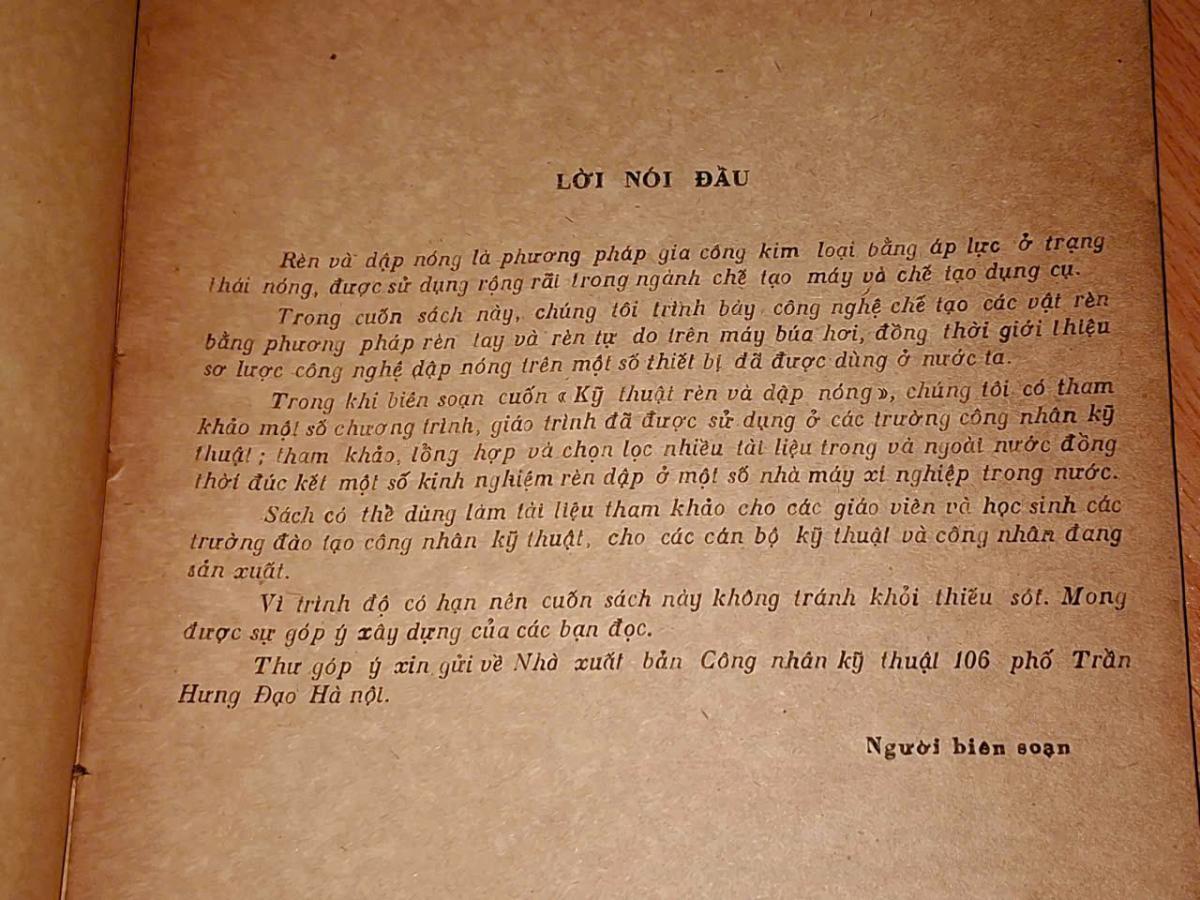 LỜI NÓI ĐẦU
Rèn và dập nóng là phương pháp gia công kim loại bằng áp lực ở trạng
thái nóng, được sử dụng rộng rãi trong ngành chế tạo máy và chế tạo dụng cụ.
Trong cuốn sách này, chúng tôi trình bày công nghệ chế tạo các vật rèn
bằng phương pháp rèn tay và rèn tự do trên máy búa hơi, đồng thời giới thiệu
sơ lược công nghệ dập nóng trên một số thiết bị đã được dùng ở nước ta.
Trong khi biên soạn cuốn « Kỹ thuật rèn và dập nóng», chúng tôi có tham
khảo một số chương trình, giáo trình đã được sử dụng ở các trường công nhân kỹ
thuật ; tham khảo, tổng hợp và chọn lọc nhiều tài liệu trong và ngoài nước đồng
thời đúc kết một số kinh nghiệm rèn dập ở một số nhà máy xí nghiệp trong nước.
Sách có thể dùng làm tài liệu tham khảo cho các giáo viên và học sinh các
trường đào tạo công nhân kỹ thuật, cho các cán bộ kỹ thuật và công nhân đang
sản xuất.
Vì trình độ có hạn nên cuốn sách này không tránh khỏi thiếu sót. Mong
được sự góp ý xây dựng của các bạn đọc.
Thư góp ý xin gửi về Nhà xuất bản Công nhân kỹ thuật 106 phố Trần
Hưng Đạo Hà nội.
Người biên soạn